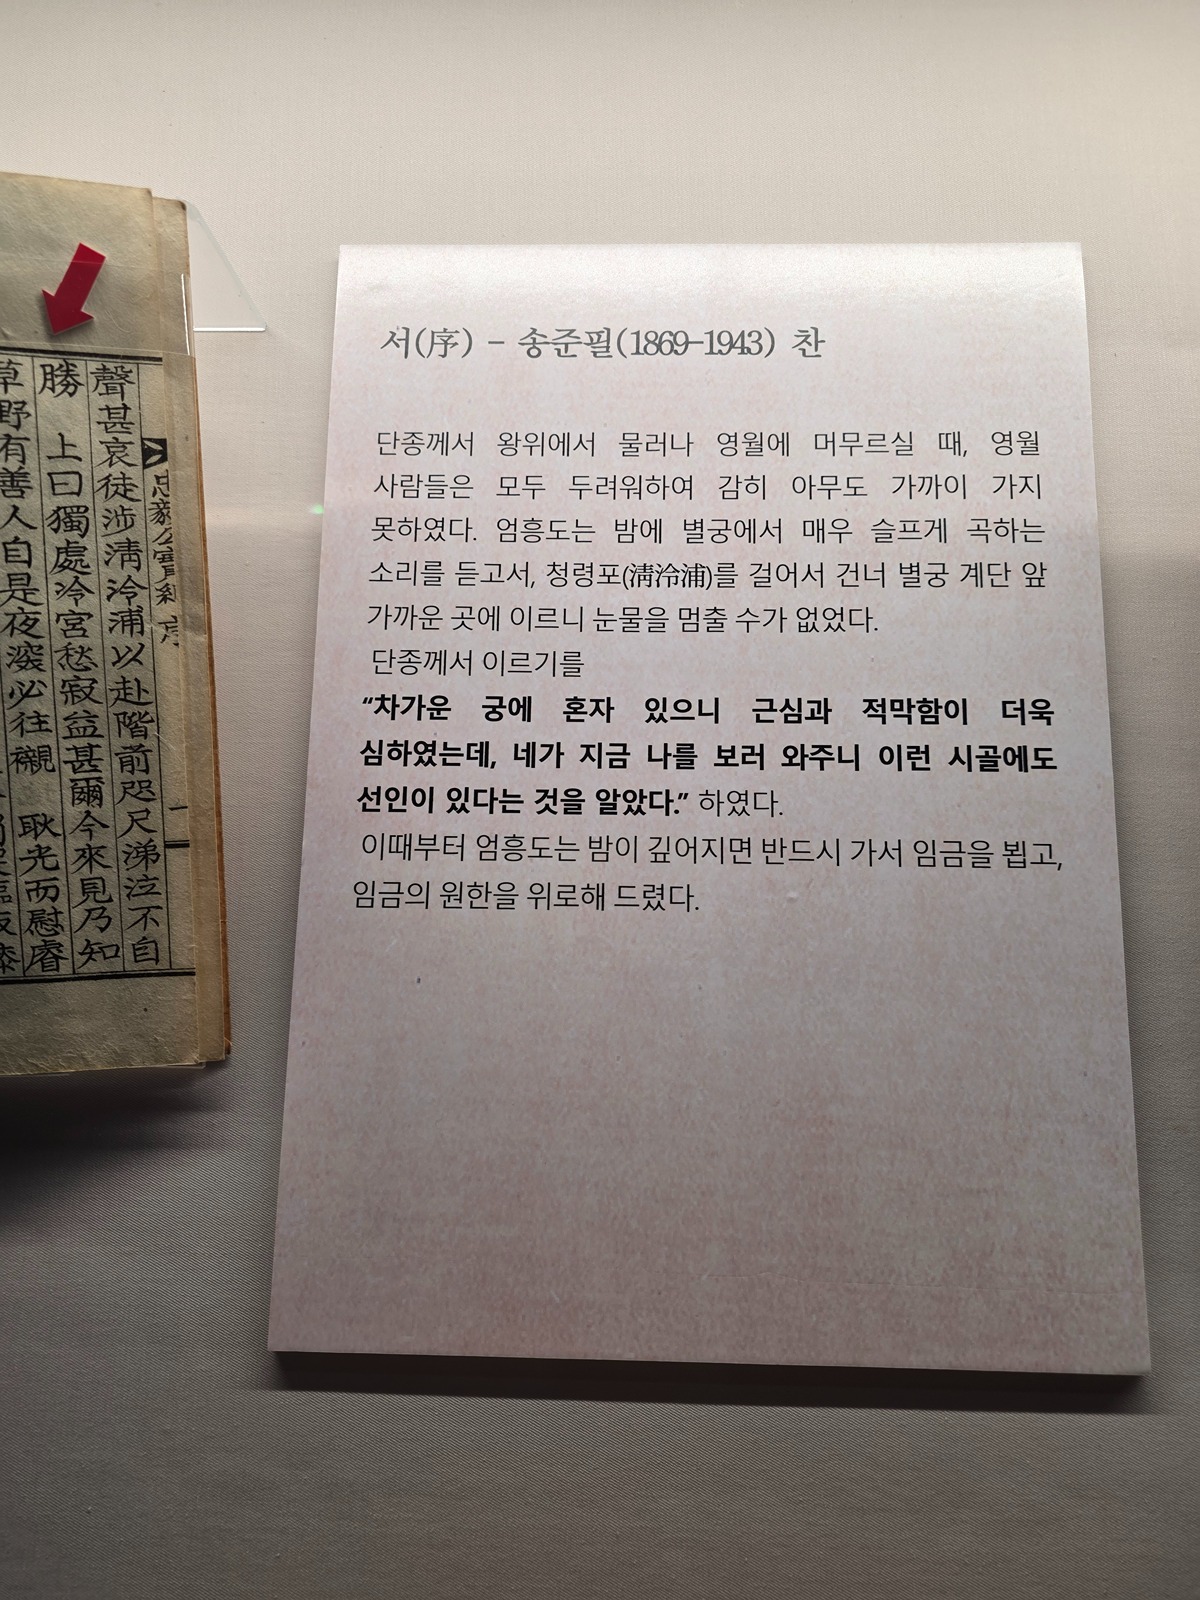 서(序) - 송준필(1869-1943) 찬
단종께서 왕위에서 물러나 영월에 머무르실 때, 영월
사람들은 모두 두려워하여 감히 아무도 가까이 가지
못하였다. 엄흥도는 밤에 별궁에서 매우 슬프게 곡하는
소리를 듣고서, 청령포(淸泠浦)를 걸어서 건너 별궁 계단 앞
가까운 곳에 이르니 눈물을 멈출 수가 없었다.
단종께서 이르기를
“차가운 궁에 혼자 있으니 근심과 적막함이 더욱
심하였는데, 네가 지금 나를 보러 와주니 이런 시골에도
선인이 있다는 것을 알았다.” 하였다.
이때부터 엄흥도는 밤이 깊어지면 반드시 가서 임금을 뵙고,
임금의 원한을 위로해 드렸다.
忠毅公實紀 序 一
聲甚哀徒涉淸泠浦以赴階前咫尺涕泣不自
勝 上曰獨處冷宮愁寂益甚爾今來見乃知
草野有善人自是夜深必往襯 耿光而慰睿